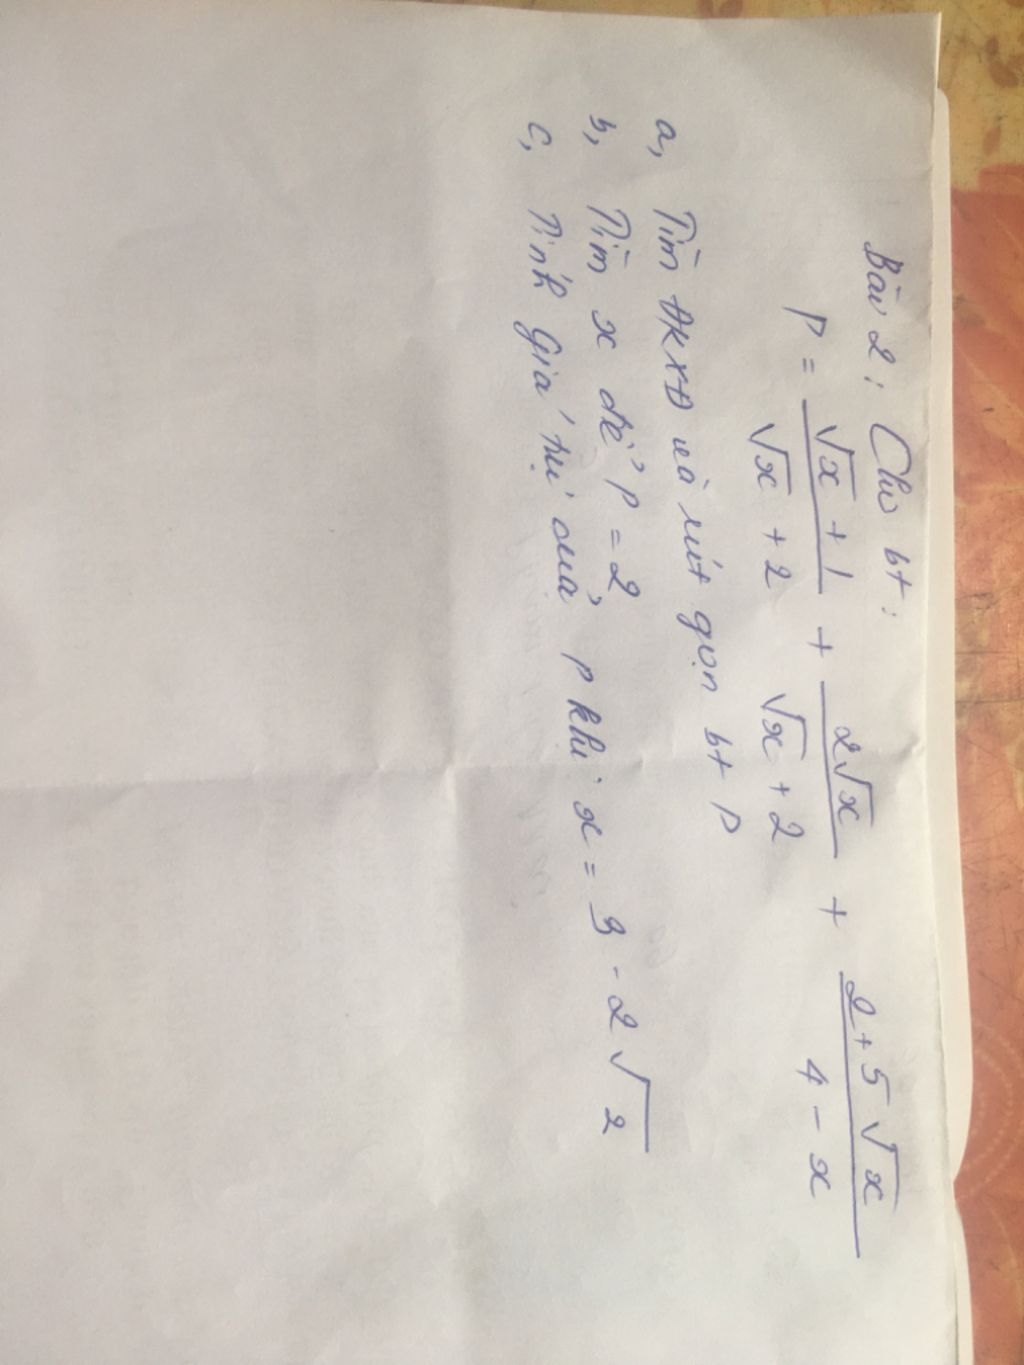 Bài 2: Cho bt:
P = \frac{\sqrt{x} + 1}{\sqrt{x} + 2} + \frac{2\sqrt{x}}{\sqrt{x} + 2} + \frac{2 + 5\sqrt{x}}{4 - x}
a, Tìm ĐKXĐ và rút gọn bt P
b, Tìm x để P = 2
c, Tính giá trị của P khi x = 3 - 2\sqrt{2}